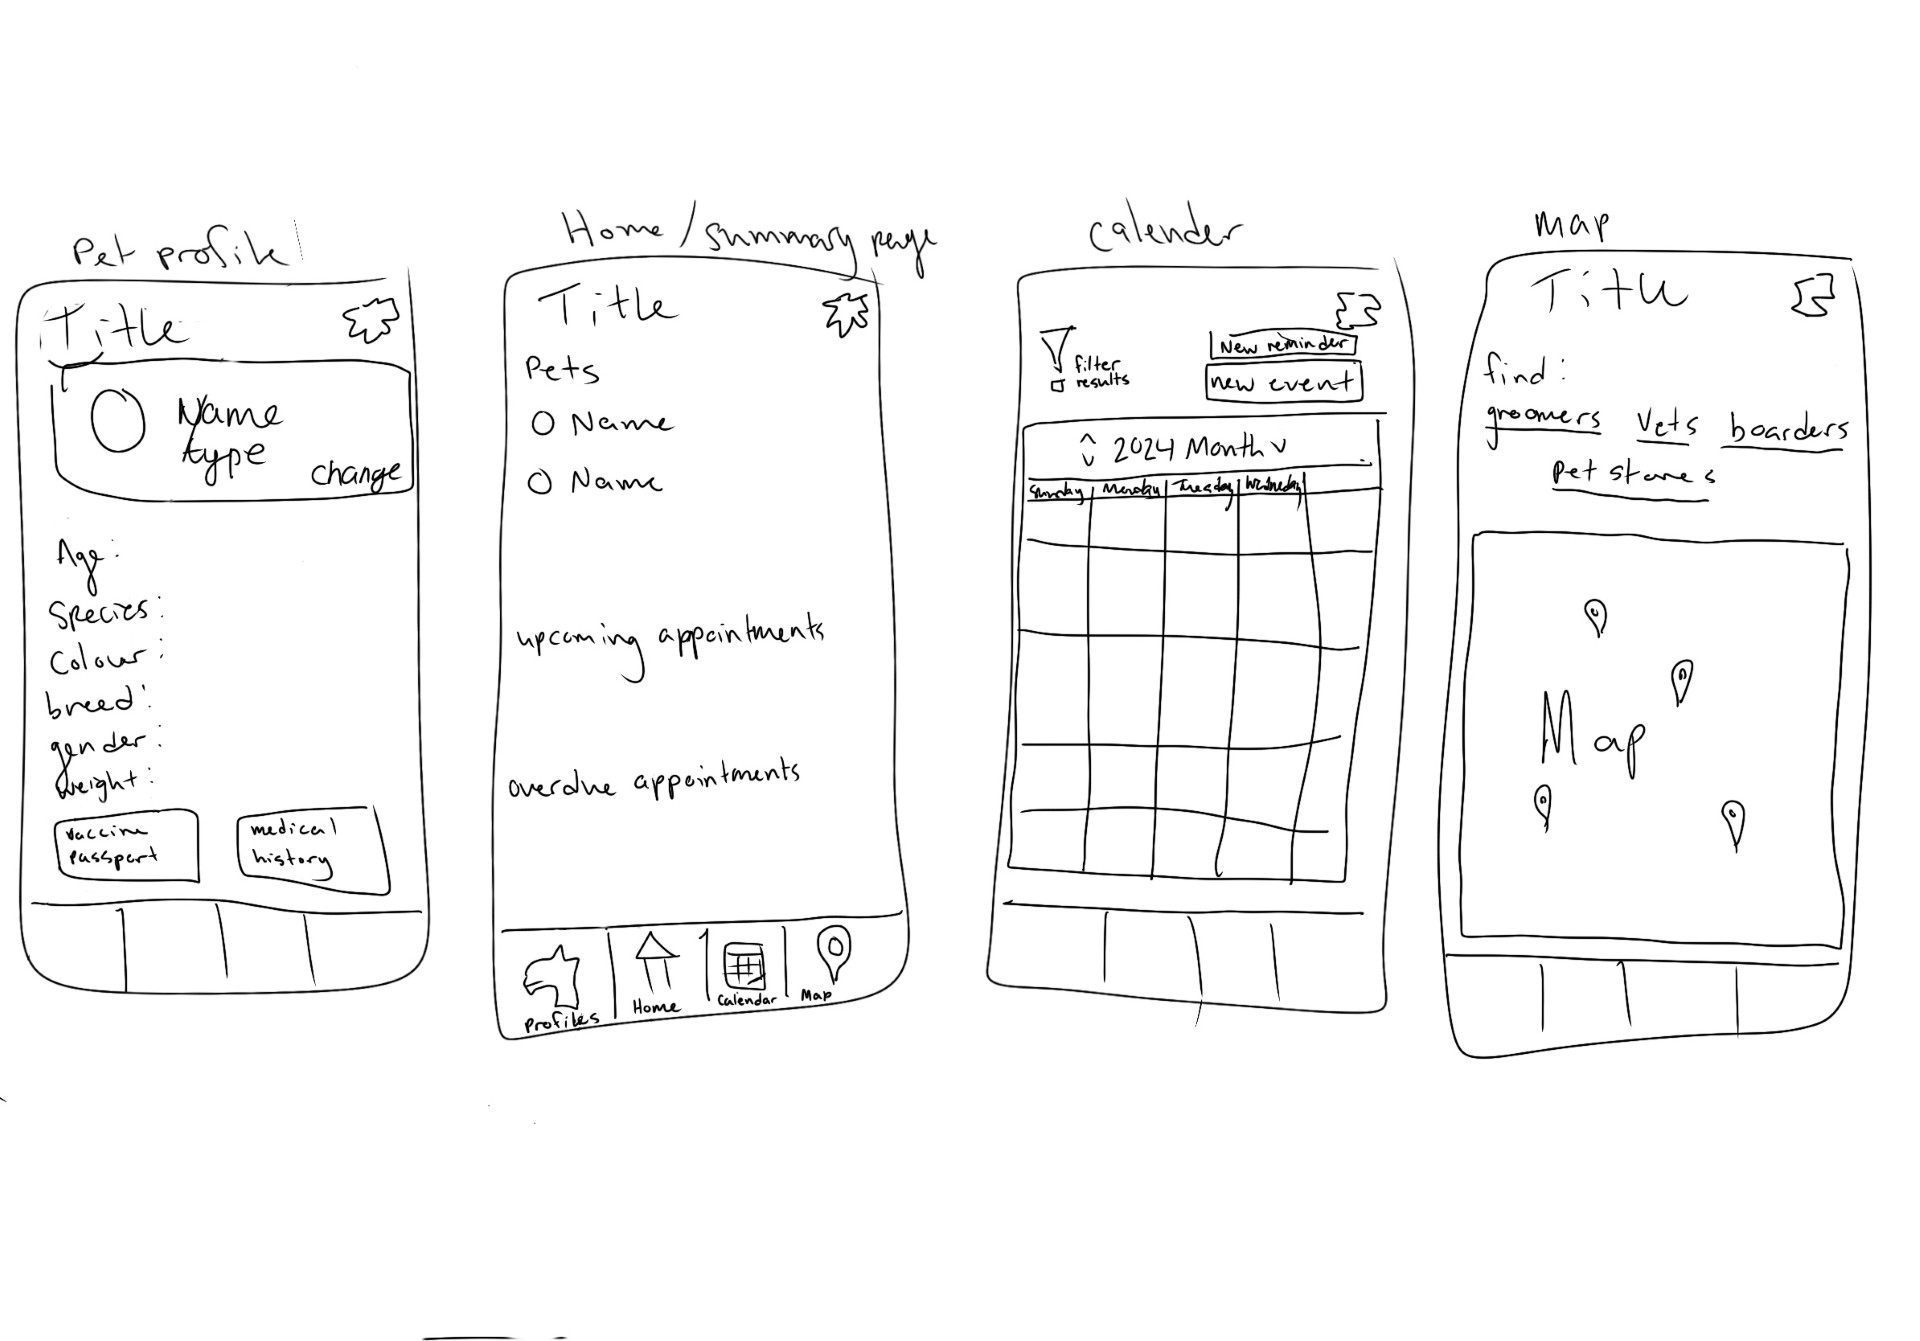 Pet profile
Title
Name
type
change
Age:
Species:
Colour:
breed:
gender:
weight:
vaccine
passport
medical
history
Home/summary page
Title
Pets
Name
Name
upcoming appointments
overdue appointments
Profiles
Home
Calendar
Map
calender
filter
results
New reminder
new event
2024 Month
Sunday Monday Tuesday Wednesday
map
Title
find:
groomers vets boarders
pet stores
Map